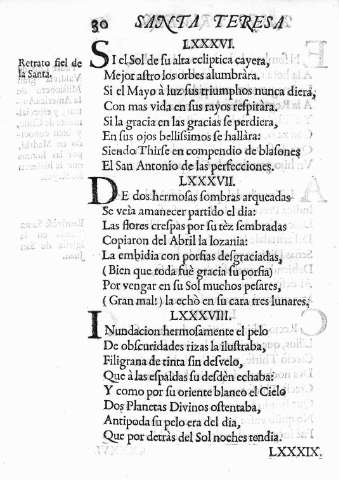 30 SANTA TERESA
Retrato fiel de
la Santa.
LXXXVI.
SI el Sol de su alta ecliptica cayera,
Mejor astro los orbes alumbràra.
Si el Mayo à luz sus triumphos nunca diera,
Con mas vida en sus rayos respiràra.
Si la gracia en las gracias se perdiera,
En sus ojos bellissimos se hallàra:
Siendo Thirse en compendio de blasones
El San Antonio de las perfecciones.
LXXXVII.
DE dos hermosas sombras arqueadas
Se veìa amanecer partido el dia:
Las flores crespas por su tèz sembradas
Copiaron del Abril la lozania:
La embidia con porfias desgraciadas,
( Bien que toda fuè gracia su porfia)
Por vengar en su Sol muchos pesares,
( Gran mal! ) la echò en su cara tres lunares.
LXXXVIII.
INundacion hermosamente el pelo
De obscuridades rizas la ilustraba,
Filigrana de tinta sin desvelo,
Que à las espaldas su desdèn echaba:
Y como por su oriente blanco el Cielo
Dos Planetas Divinos ostentaba,
Antipoda su pelo era del dia,
Que por detràs del Sol noches tendia.
LXXXIX.